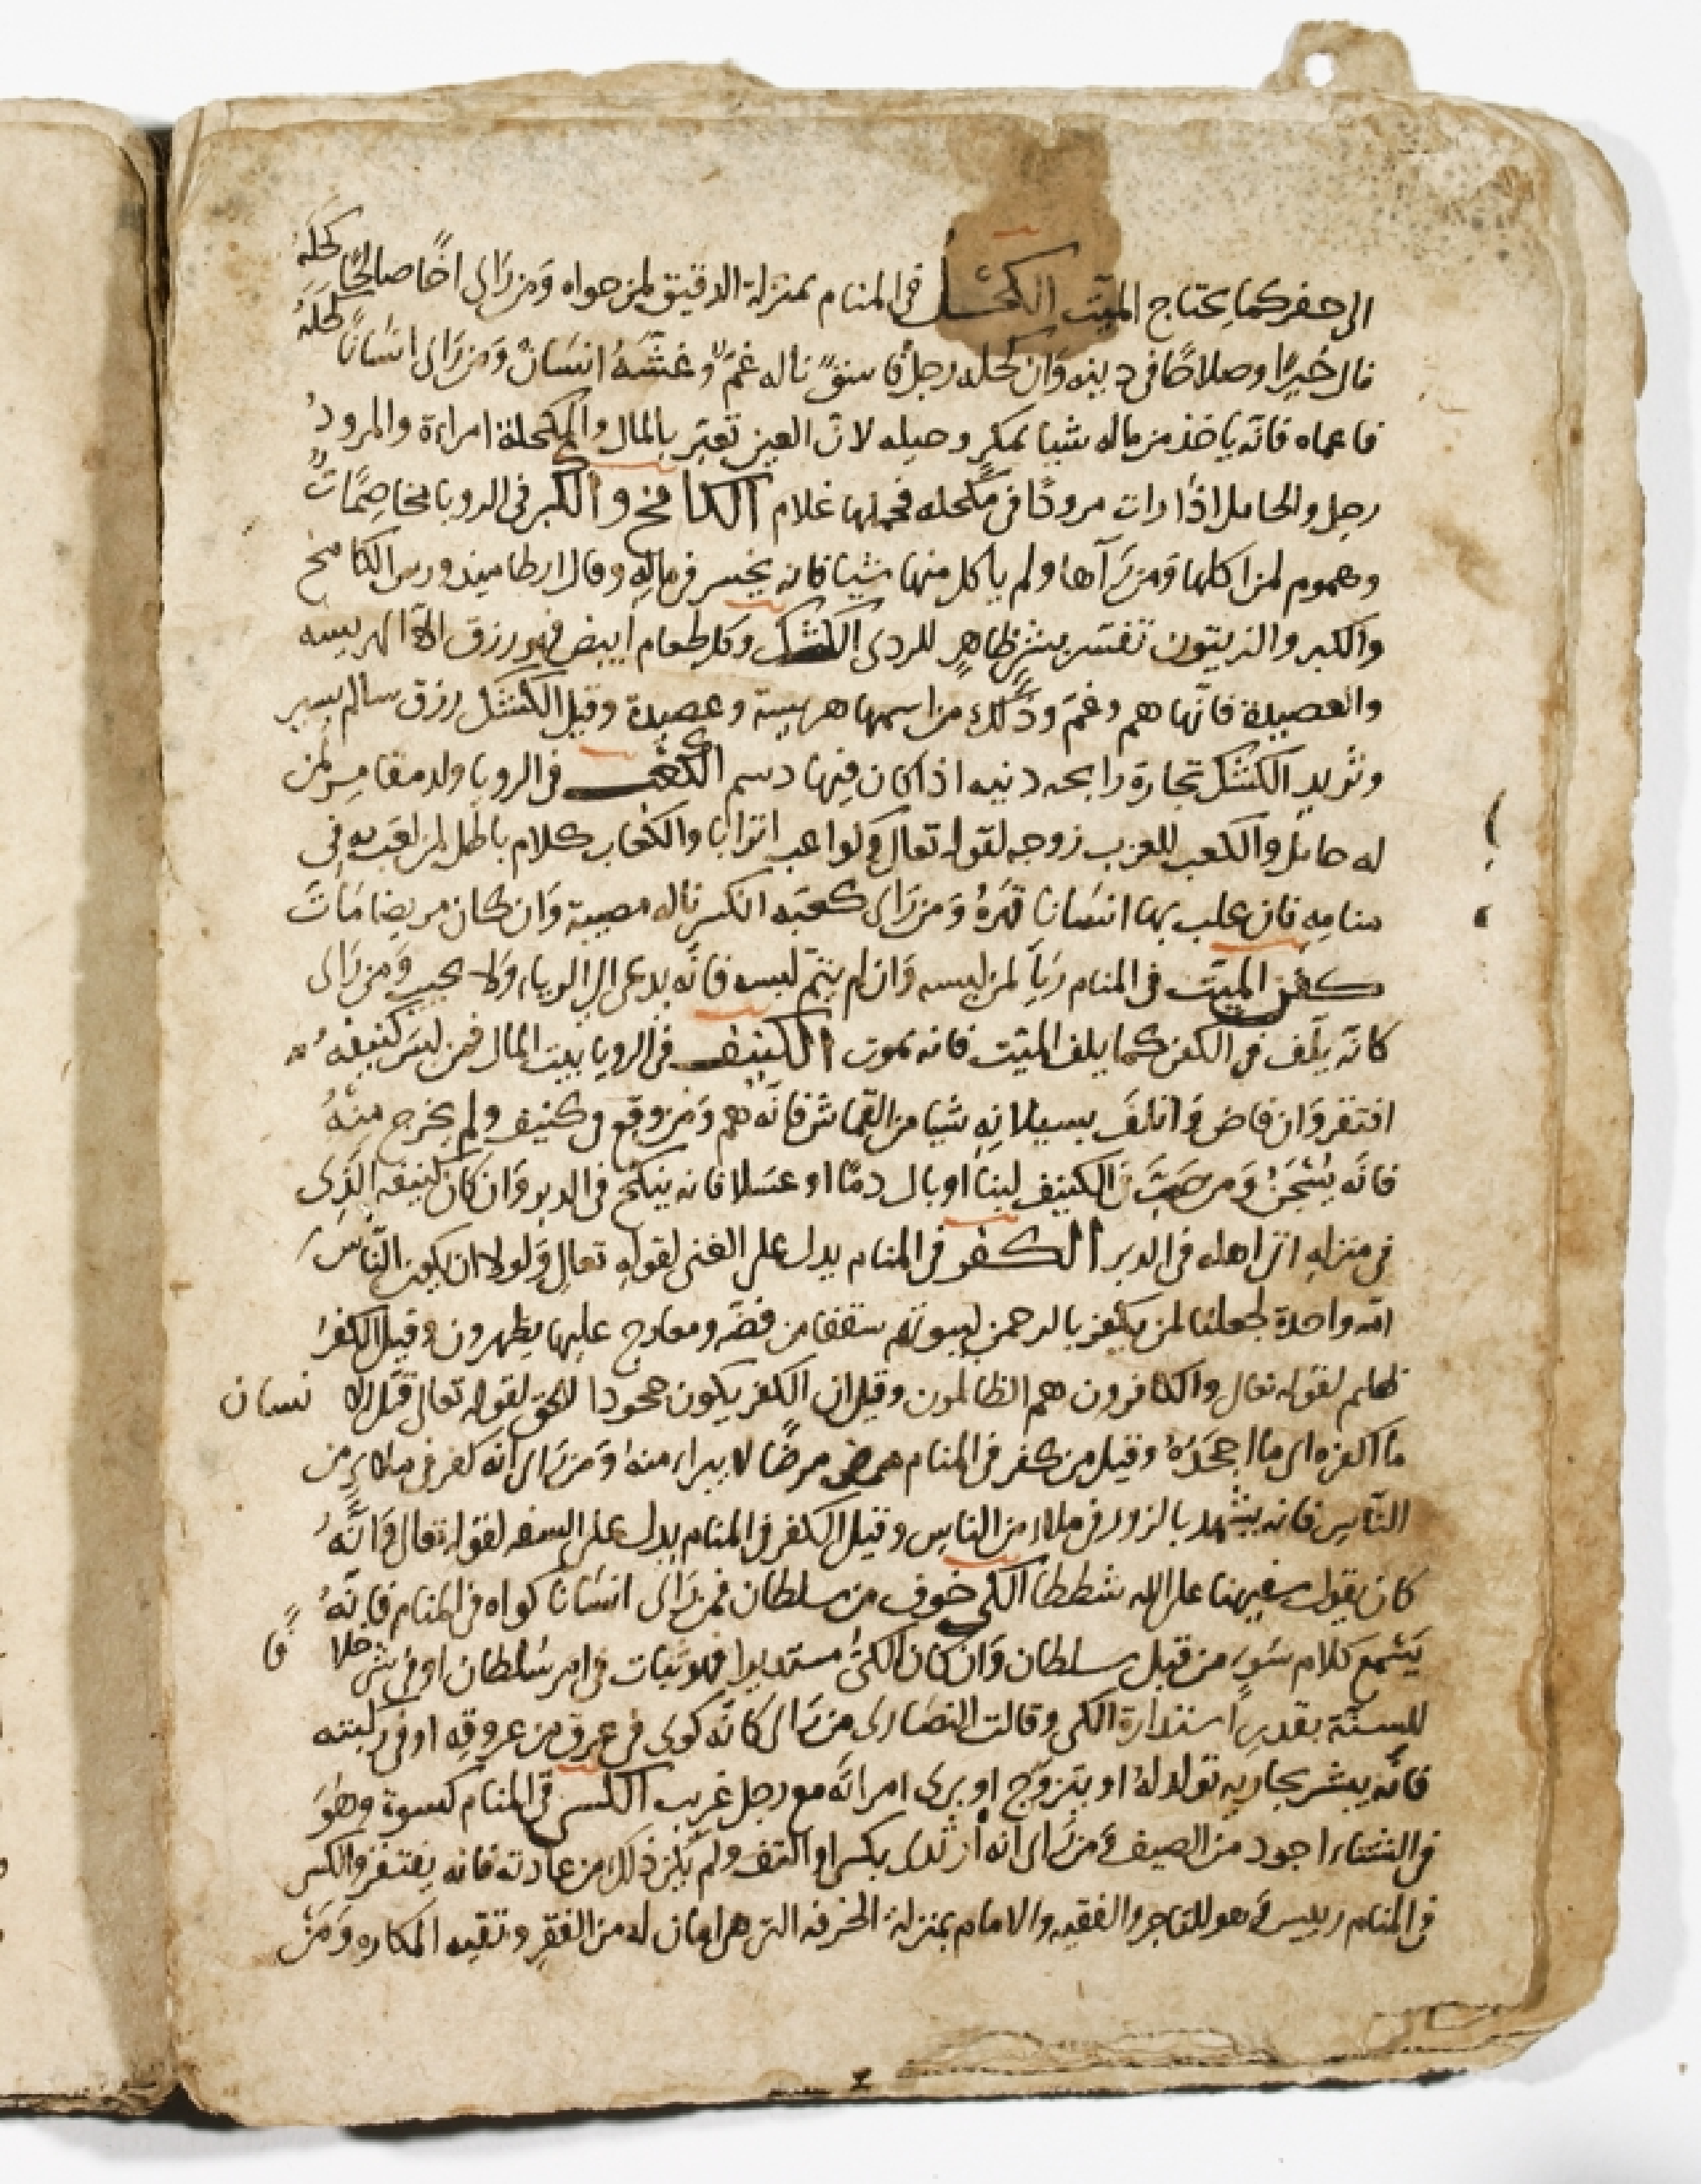 الى حفر كما يحتاج الميت الكحل فى المنام بمنزلة الدقيق لمن حواه وَمن رَاى اخًا صالحًا كحله
نال خيرًا وصلاحًا فى دينه وَان كحله رجل فاسق ناله غمّ وغشّهُ انسَان وَمن رَاى انسَانًا كحلهُ
فاعماه فانّه ياخذ من ماله شيا بمكرٍ وحيله لانّ العين تعبّر بالمال والمكحلة امراءة والمرودُ
رجل والحامل اذا رات مرودًا فى مكحله فحملها غلام الكامخ والكبر فى الرويا مخاصِمَات
وهموم لمن اكلها وَمن رَآها ولم ياكل منها شيا فانه يخسر فى مالِهِ وقال ارطاميدورس الكامخ
والكبر والزيتون تفسر بشر ظاهرٍ للردى الكشك وكل طعام ابيض فهو رزق الّا الهريسه
والعصيدة فانّها هم وغمّ وذلك من اسمها هريسة وعصيدة وقيل الكشك رزق سالم يسير
وثريد الكشك تجارة رابحه دنيه اذا كان فيها دسم الكعب فى الرويا ولد مقامِر لمن
له حامل والكعب للعزب زوجه لقوله تعالى وكواعب اترابا والكعاب كلام باطل لمن لعب به فى
منامِهِ فان غلب بها انسَانا قهرهُ وَمن رَاى كعبه انكسر ناله مصيبة وَان كان مريضا مَاتَ
كفن الميّت فى المنام رياً لمن لبسه وَان لم يتمّ لبسه فانّه يدعى الى الرياء ولا يجيب وَمن رَاى
كانّه يلّف فى الكفن كما يلف الميّت فانه يموت الكنيف فى الرويا بيت المال فمن كنس كنيفهُ
افتقر وَان فاض وَاتلفَ بسيلانِهِ شيا من القماش فانّه هم وَمن وقع فى كنيف ولم يخرج منهُ
فانّه يُسْجَن وَمن صَبَّ فى الكنيف لبنا او بال دمًا او عسَلا فانه ينكح فى الدبر وَان كان كنيفه الّذى
فى منزلهِ اتى اهله فى الدبر الكفر فى المنام يدل على الغنى لقوله تعالى وَلولا ان يكون النّاسُ
امّه واحدة لجعلنا لمن يكفر بالرحمن لبيوتهم سقفا من فضّه ومعارج عليها يظهرون وقيل الكفرُ
ظلم لقوله تعالى والكافرون هم الظالمون وقيل ان الكفر يكون جحودا للحق لقوله تعالى قتل الا نسان
ما اكفره اى ما اجحدهُ وقيل من كفر فى المنام مرض مرضًا لا يبراء منهُ وَمن رَاى انه كفر فى ملاءٍ من
النّاس فانه يشهد بالزور فى ملاء من الناس وقيل الكفر فى المنام يدل على السفه لقوله تعالى وَانّهُ
كان يقول سفيهنا على الله شططا الكى خوف من سلطان فمن رَاى انسَانًا كواه فى المنام فانّهُ
يَسْمع كلام سَوء من قبل سلطان وَان كان الكىّ مستديرا فهو ثبات فى امر سُلطان او فى شى خلا فًا
للسنّة بقدرِ استدارة الكى وقالت النصَارى من رَاى كانّه كوى فى عرق من عروقِه او فى ركبته
فانّه يبشر بجاريه تولد لهُ او يتزوّج او يرى امراتَه مع رجل غريب الكسى فى المنام كسوة وهُوَ
فى الشتاء اجود من الصيف وَمن رَاى انه ارتدى بكسى او التف ولم يكن ذلك من عادته فانه يفتقر والكسى
فى المنام رييس وَهو للتاجر والفقيه والامام بمنزلة الحرفه التى هى امان له من الفقرِ وتقيه المكاره وَمَن